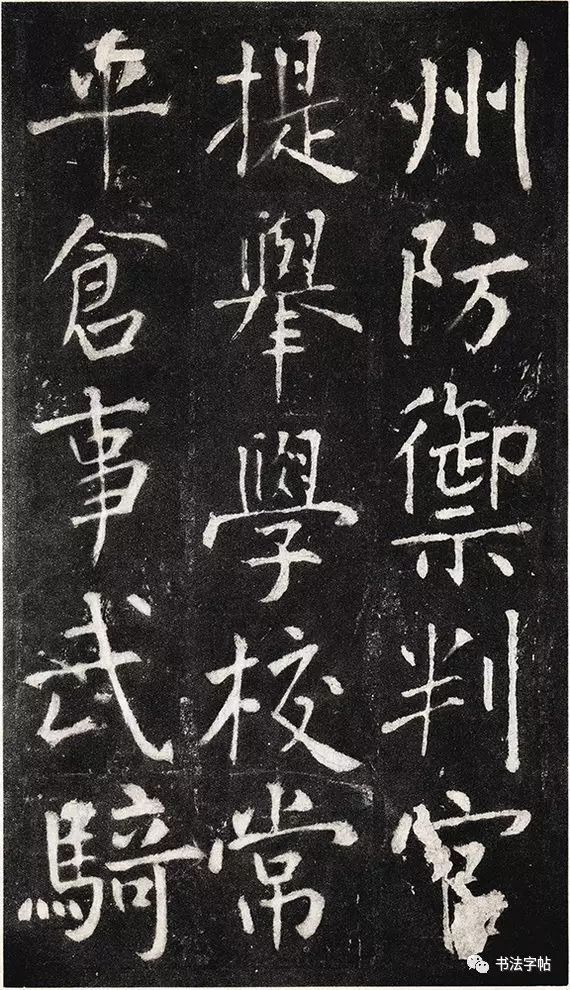 州防禦判官
提舉學校常
平倉事武騎
书法字帖